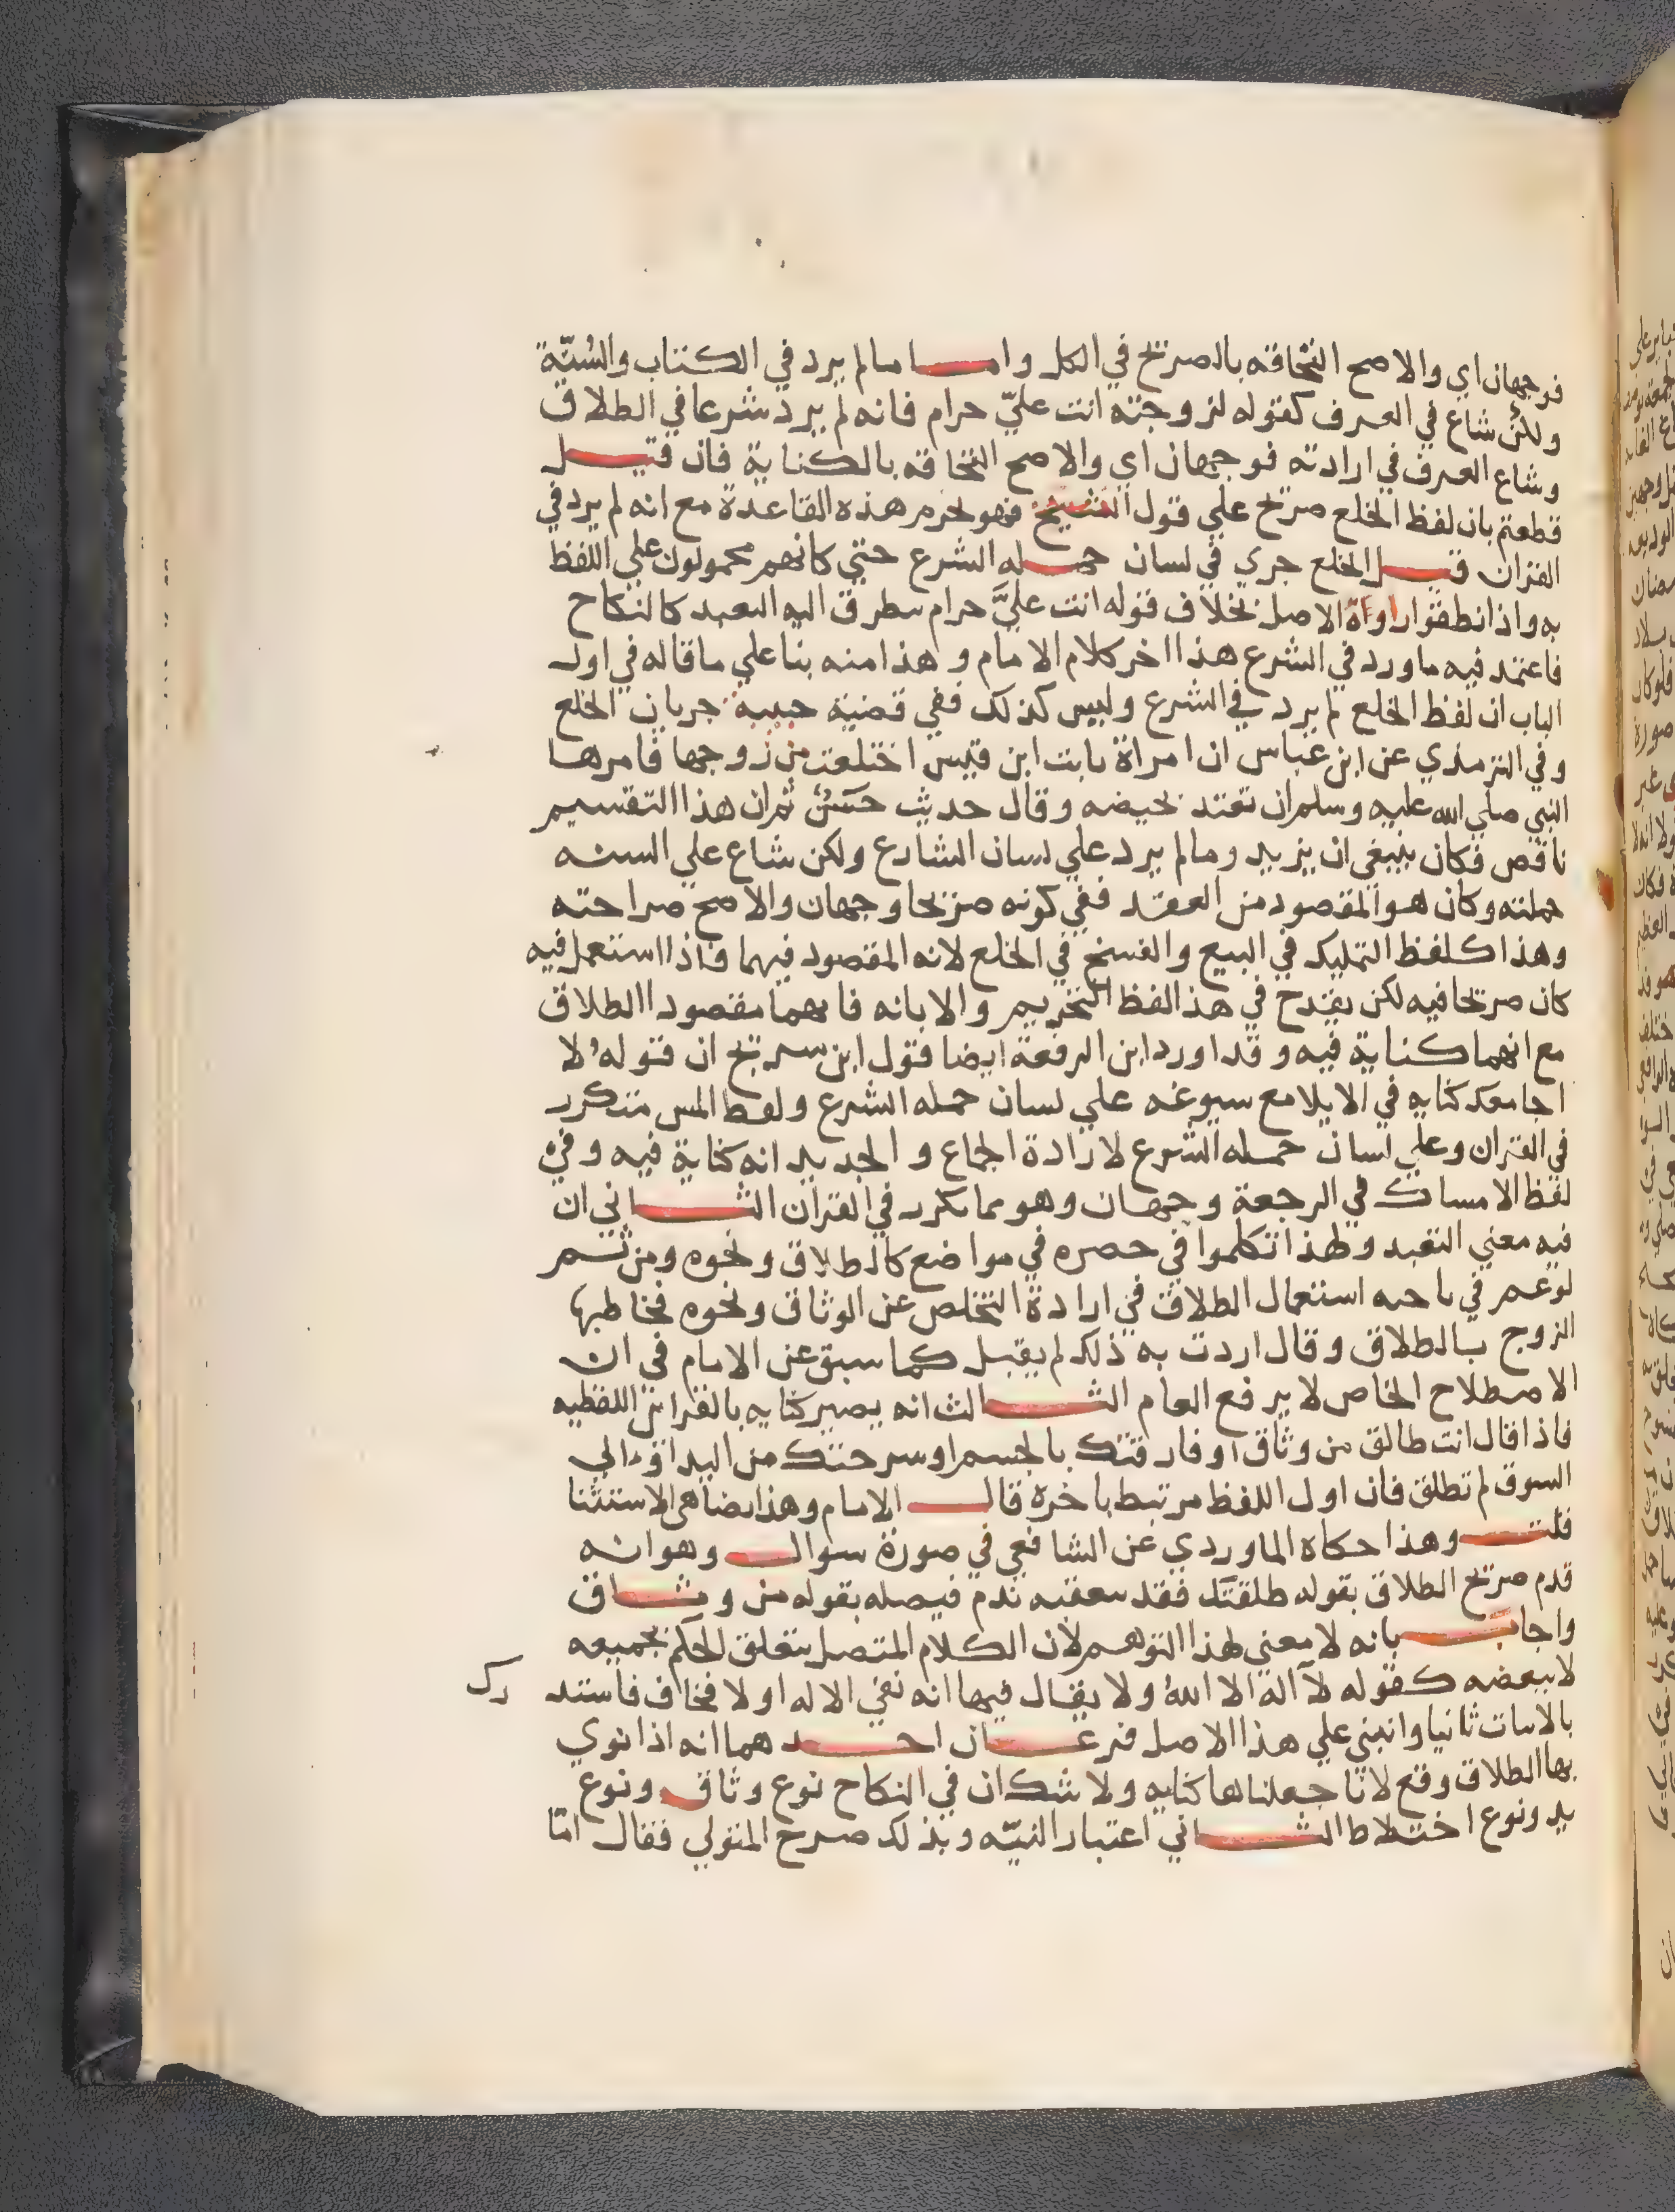 فوجهان اي والاصح التحاقه بالصريح في الكل واما ما لم يرد في الكتاب والسُنّة
ولكن شاع في العرف كقوله لزوجته انت عليّ حرام فانه لم يرد شرعا في الطلاق
وشاع العرف في ارادته فوجهان اي والاصح التحاقه بالكناية فان قيل
قطعتم بان لفظ الخلع صريح علي قول الشيخ فهو لخرم هذه القاعدة مع انه لم يرد في
القران قيل الخلع جري في لسان حمله الشرع حتي كانهم محمولون علي اللفظ
به واذا نطقوا راواة الاصل بخلاف قوله انت عليَّ حرام سطرق اليه التعبد كالنكاح
فاعتمد فيه ما ورد في الشرع هذا اخر كلام الامام وهذا منه بنا علي ما قاله في اول
الباب ان لفظ الخلع لم يرد في الشرع وليس كذلك ففي قضية حبيبة جريان الخلع
وفي الترمذي عن ابن عباس ان امراة ثابت ابن قيس اختلعت من زوجها فامرها
النبي صلي الله عليه وسلم ان تعتد بحيضه وقال حديث حسَنٌ ثم ان هذا التقسيم
ناقص فكان ينبغي ان يزيد وما لم يرد علي لسان الشارع ولكن شاع علي السنه
حملته وكان هو المقصود من العقد ففي كونه صريحا وجهان والاصح صراحته
وهذا كلفظ التمليك في البيع والفسخ في الخلع لانه المقصود فيهما فاذا استعمل فيه
كان صريحا فيه لكن يقدح في هذا لفظ التحريم والابانه فانهما مقصودا الطلاق
مع انهما كناية فيه وقد اورد ابن الرفعة ايضا قول ابن سريج ان قوله لا
اجامعك كنايه في الايلا مع سيوغه علي لسان حمله الشرع ولفظ المس متكرر
في القران وعلي لسان حمله الشرع لارادة الجماع و الجديد انه كناية فيه وفي
لفظ الامساك في الرجعة وجهان وهو مما تكرر في القران الثاني ان
فيه معني التعبد ولهذا تكلموا في حصره في مواضع كالطلاق ونحوه ومن ثم
لو عم في ناحيه استعمال الطلاق في ارادة التخلص عن الوثاق ونحوه فخاطبها
الزوج بالطلاق وقال اردت به ذلك لم يقبل كما سبق عن الامام في ان
الاصطلاح الخاص لا يرفع العام الثالث انه يصير كنايه بالقراين اللفظيه
فاذا قال انت طالق من وثاق او فارقتك بالجسم او سرحتك من اليد او الي
السوق لم تطلق فان اول اللفظ مرتبط باخره قال الامام وهذا يضاهي الاستثنا
قلت وهذا حكاه الماوردي عن الشافعي في صورة سوال وهو انه
قدم صريح الطلاق بقوله طلقتك فقد سعقبه ندم فيصله بقوله من وثاق
واجاب بانه لا معني لهذا التوهم لان الكلام المتصل يتعلق الحكم بجميعه
لا ببعضه كقوله لا اله الا اللهُ ولا يقال فيها انه نفي الاله اولا فخاف فاستد رك
بالاثبات ثانيا وانبني علي هذا الاصل فرعان احدهما انه اذا نوي
بها الطلاق وقع لانا جعلناها كنايه ولا شك ان في النكاح نوع وثاق ونوع
يد ونوع اختلاط الثاني اعتبار النيّه وبذلك صرح المتولي فقال امّا